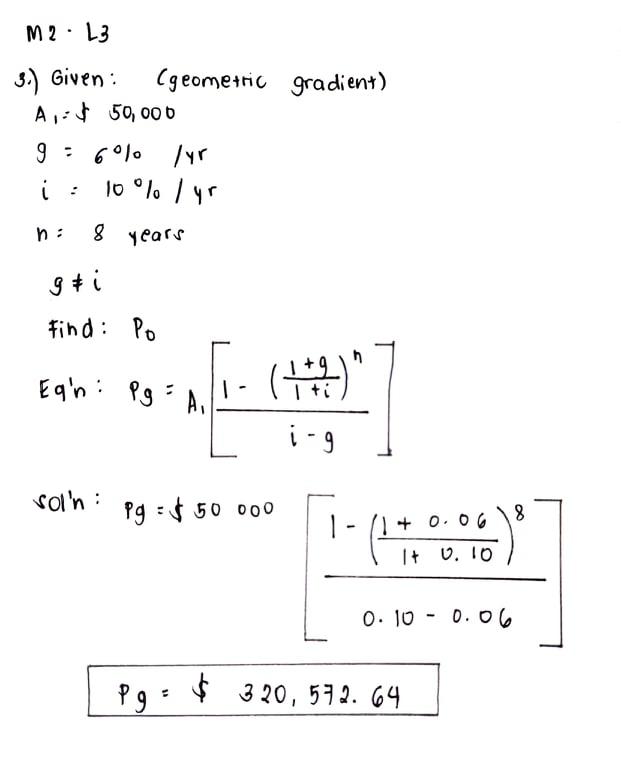 M2 · L3
3.) Given: (geometric gradient)
A₁ = $ 50,000
g = 6% /yr
i = 10% / yr
n = 8 years
g ≠ i
Find: P₀
Eq'n: Pg = A₁ [ 1 - ( (1+g) / (1+i) )ⁿ / i - g ]
Sol'n: Pg = $ 50 000 [ 1 - ( (1 + 0.06) / (1 + 0.10) )⁸ / 0.10 - 0.06 ]
Pg = $ 320,572.64